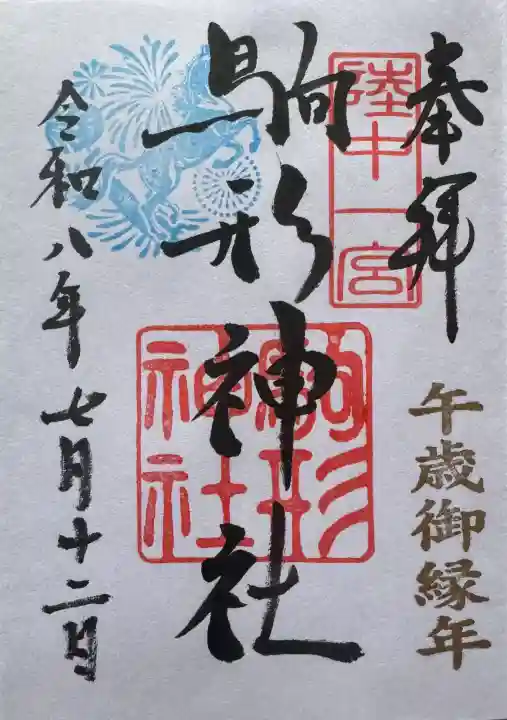 奉拝
陸中一宮
午歳御縁年
駒形神社
駒形
神社
令和八年七月十二日